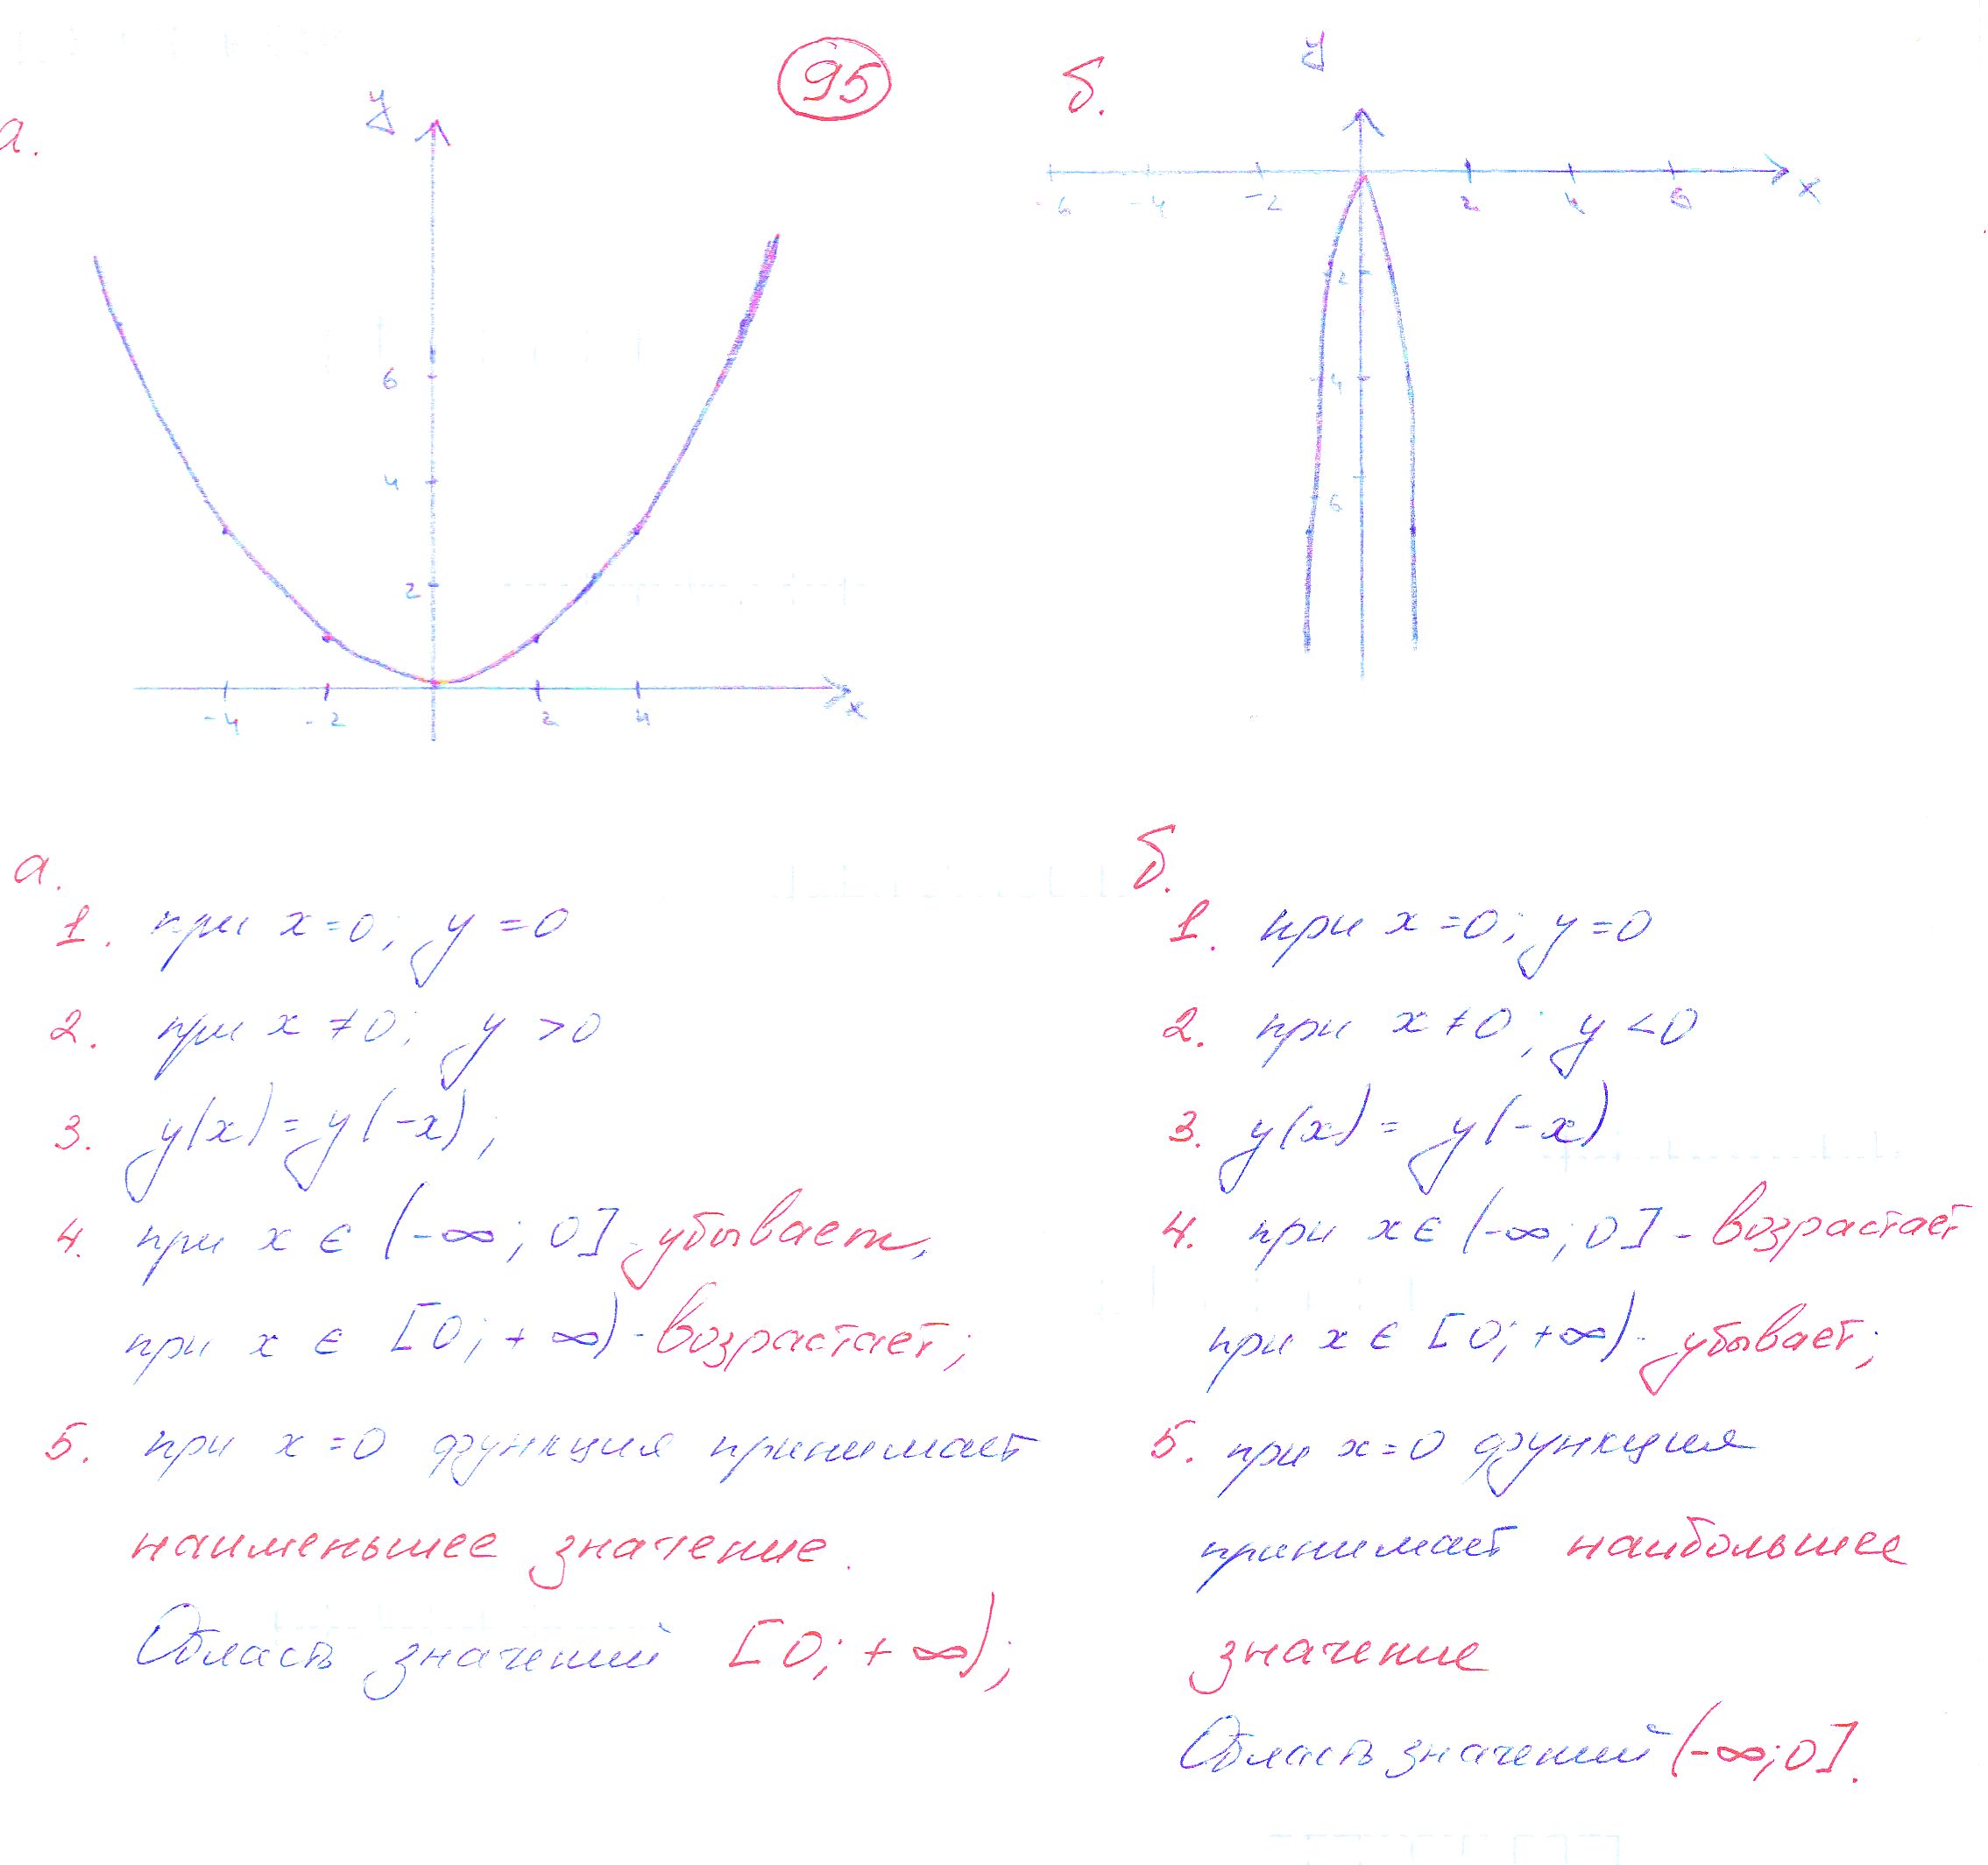 95
а.
у
6
4
2
-4
-2
2
4
х
б.
у
-6
-4
-2
2
4
6
х
2
4
6
а.
1. при x=0; y=0
2. при x≠0; y>0
3. y(x)=y(-x);
4. при x ∈ (-∞; 0] - убывает,
при x ∈ [0; +∞) - возрастает;
5. при x=0 функция принимает
наименьшее значение.
Область значений [0; +∞);
б.
1. при x=0; y=0
2. при x≠0; y<0
3. y(x)= y(-x)
4. при x ∈ (-∞; 0] - возрастает
при x ∈ [0; +∞) - убывает;
5. при x=0 функция
принимает наибольшее
значение
Область значений (-∞; 0].